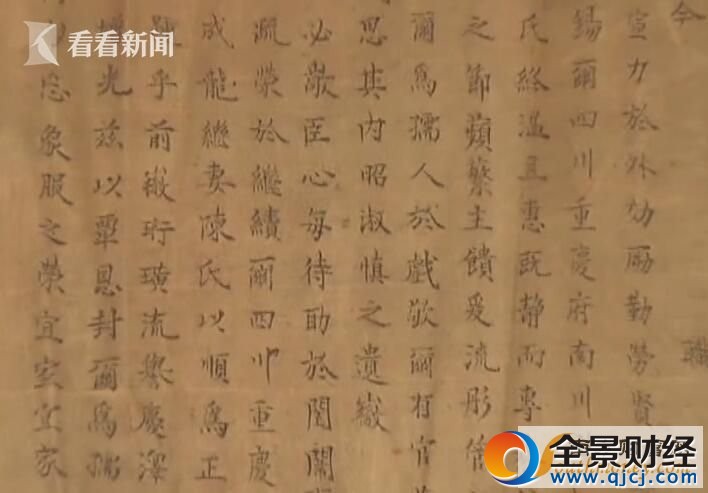 看看新闻
今職
宣力於外劬勵勤勞賢
錫爾四川重慶府南川
氏終溫且惠既靜而專
之節蘋蘩主饋爰流彤管
爾爲孺人於戲敬爾有官
思其內昭淑慎之遺徽
必敬臣心每待助於閨闈
疏榮於繼續爾四川重慶
成龍繼妻陳氏以順爲正
乎前徽珩璜流譽慶澤
光茲以覃恩封爾爲孺
忘象服之榮宜室宜家
全景财经
www.qjcj.com